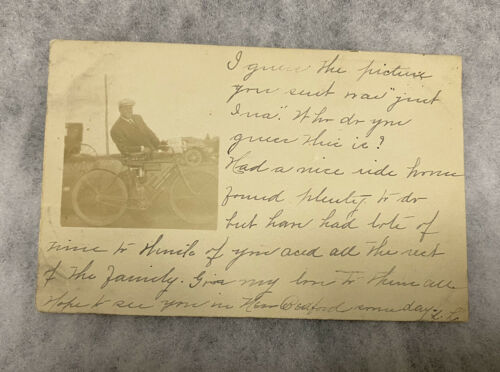 I guess the picture
you sent was "just
Ina". Who do you
guess this is?
Had a nice ride home
found plenty to do
but have had lots of
time to think of you and all the rest
of the family. Give my love to them all
Hope to see you in New Bedford someday.